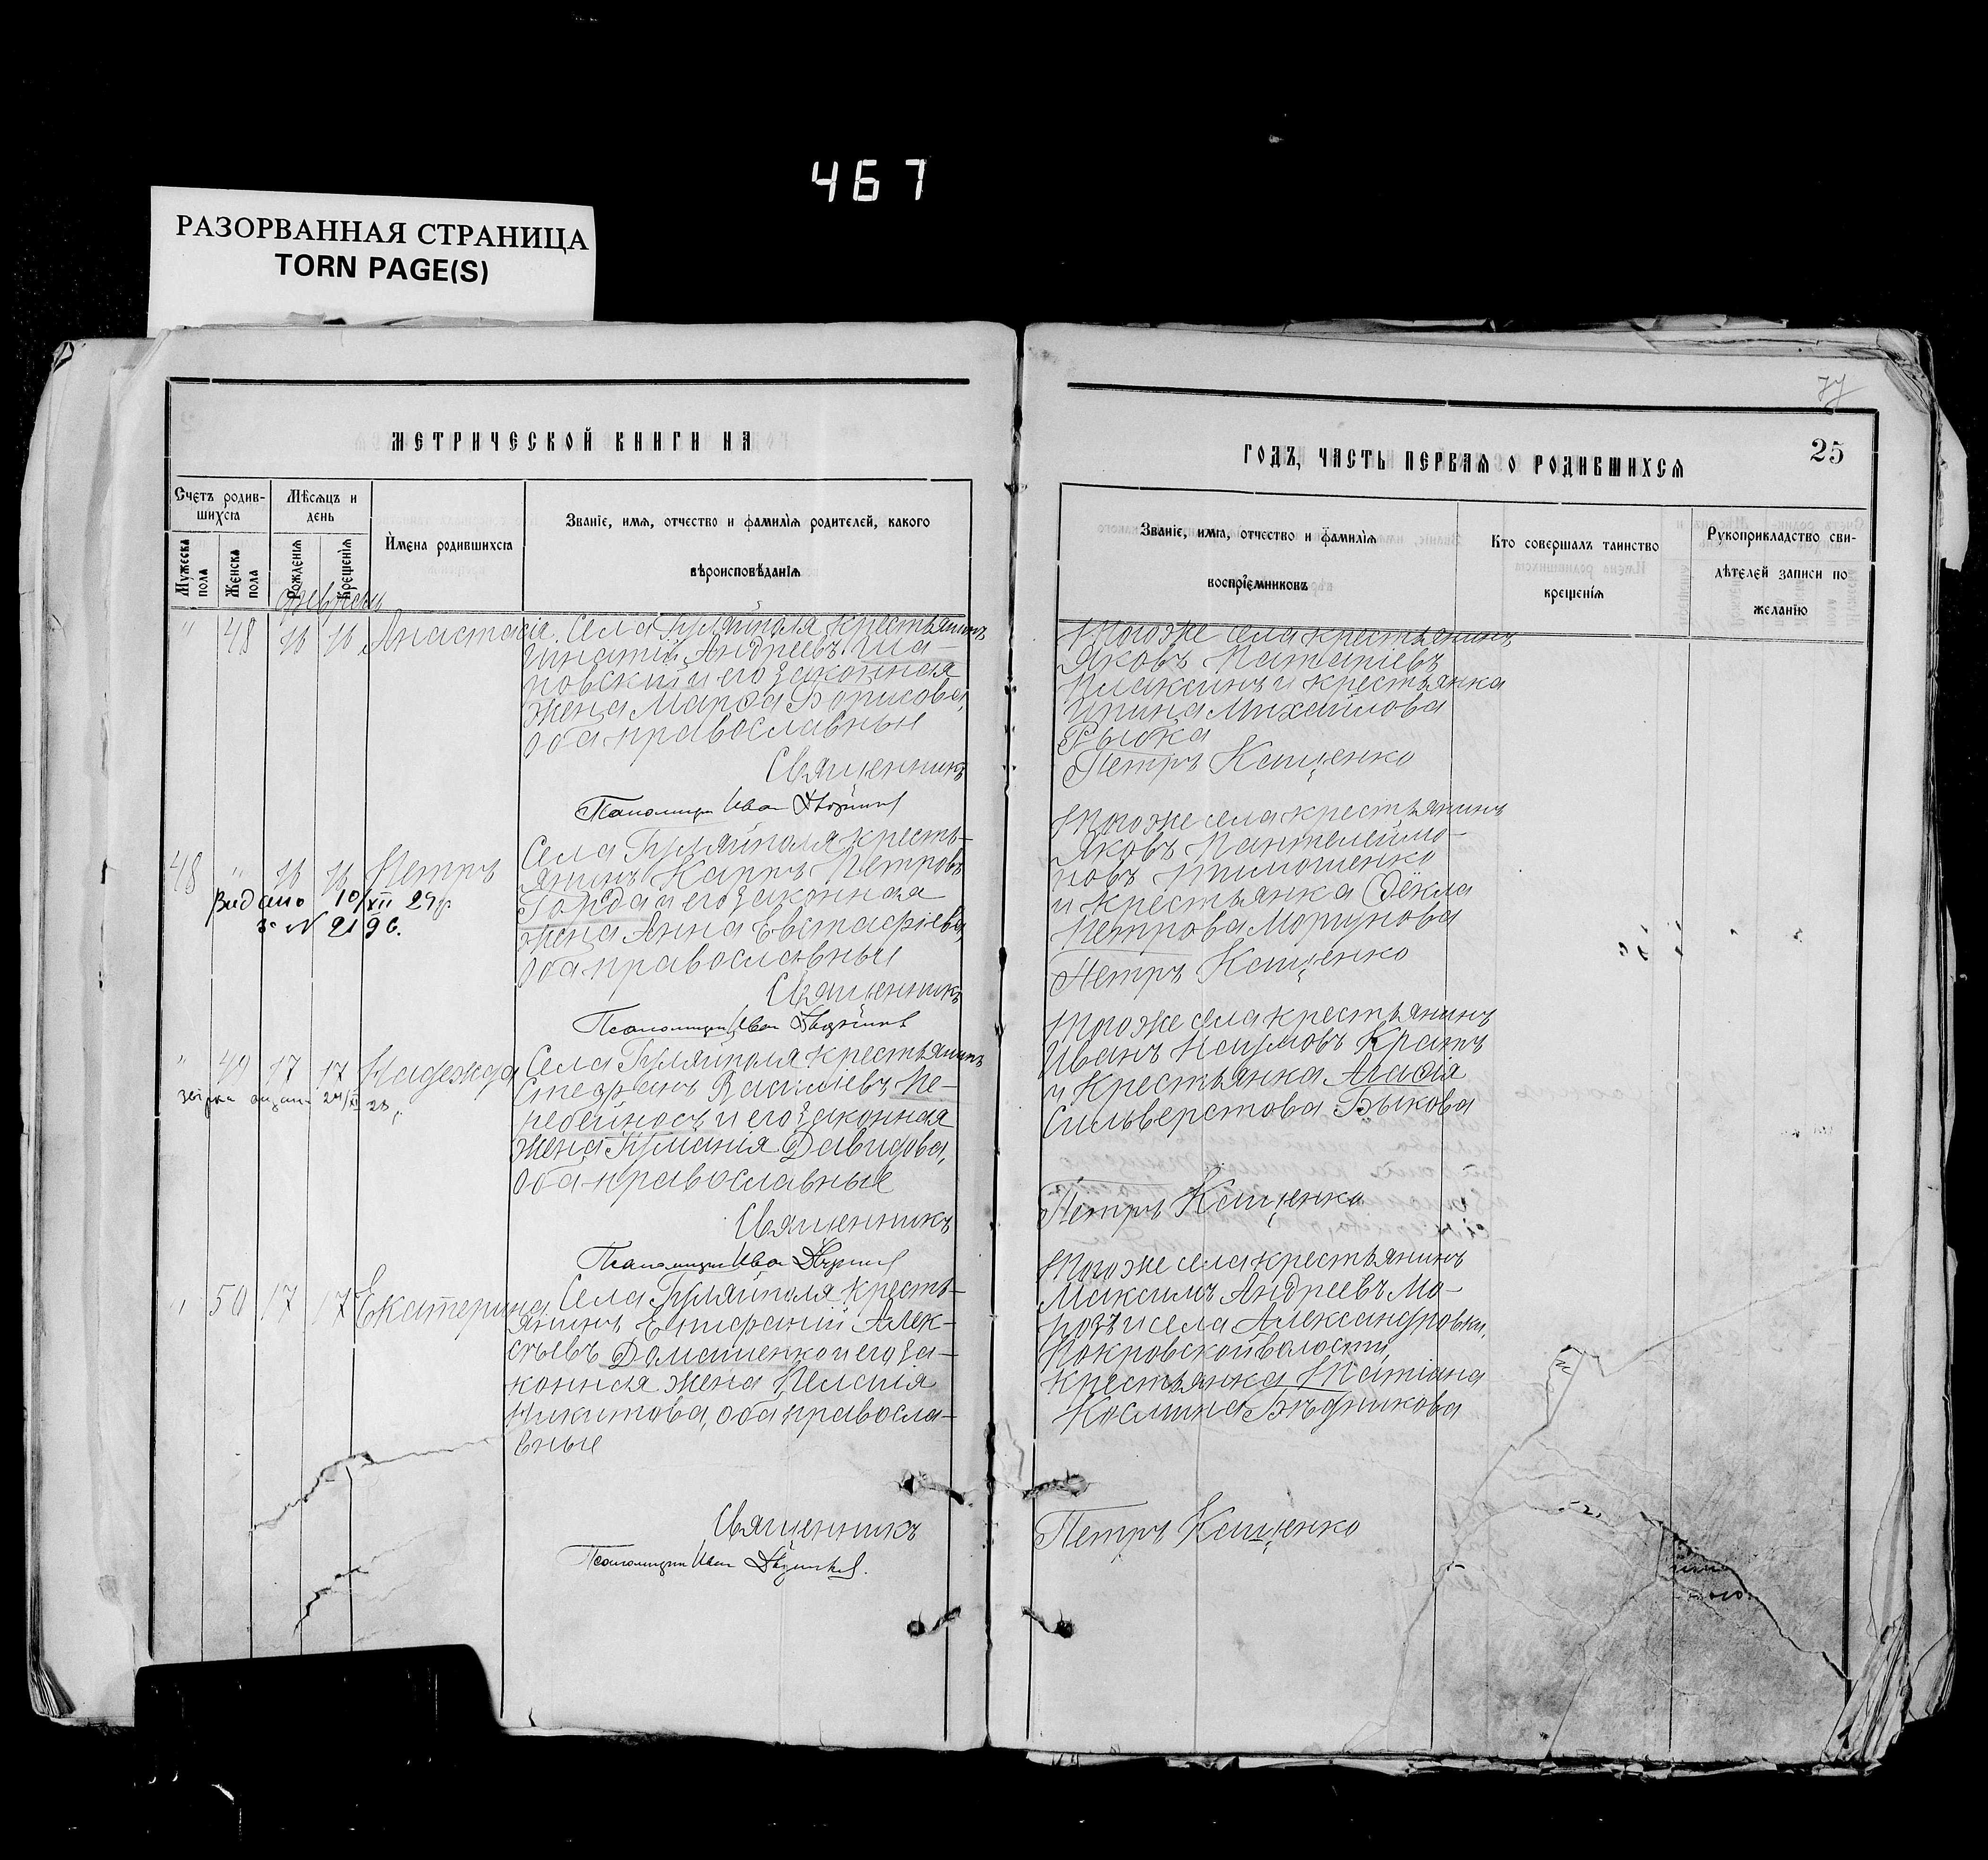 467
РАЗОРВАННАЯ СТРАНИЦА
TORN PAGE(S)
МЕТРИЧЕСКОЙ КНИГИ НА
Счетъ родив-
шихсѧ
Мѣсѧцъ и
день
Мужеска
пола
Женска
пола
Рожденїѧ
Крещенїѧ
Имена родившихсѧ
Званїе, имѧ, отчество и фамилїѧ родителей, какого
вѣроисповѣданїѧ
Февраль
" 48 16 16 Анастасія. Села Гуляйполя крестьянинъ
Игнатій Андреевъ Ша-
повскій и его законная
жена Марѳа Борисова,
оба православные
Священникъ
Псаломщик Иван
Села Гуляйполя кресть-
48 " 16 16 Петръ
янинъ Карпъ Петровъ
Видано 10/XII 29 р.
Горда и его законная
за N 2196.
жена Анна Евстафіева,
оба православные
Священникъ
Псаломщик Иван
" 49 17 17 Надежда Села Гуляйполя крестьянинъ
Стефанъ Василіевъ Пе-
ребейносъ и его законная
жена Гуманія Давидова,
оба православные
Священникъ
Псаломщик Иван
" 50 17 17 Екатерина Села Гуляйполя кресть-
янинъ Епифаній Алек-
сѣевъ Домашенко и его за-
конная жена Пелагія
Никитова, оба правосла-
вные
Священникъ
Псаломщик Иван
25
ГОДЪ, ЧАСТЬ ПЕРВАѦ О РОДИВШИХСѦ
Званїе, имѧ, отчество и фамилїѧ
воспрїемниковъ
Кто совершалъ таинство
крещенїѧ
Рукоприкладство сви-
дѣтелей записи по
желанїю
Того же села крестьянинъ
Яковъ
Плаксинъ и крестьянка
Ирина Михайлова
Рыбка
Петръ Кащенко
Того же села крестьянинъ
Яковъ Пантелеймо-
новъ Тимошенко
и крестьянка Ѳёкла
Петрова Моргунова
Петръ Кащенко
Того же села крестьянинъ
Иванъ Наумовъ Кратъ
и крестьянка Агафія
Сильверстова Быкова
Петръ Кащенко
Того же села крестьянинъ
Максимъ Андреевъ Мо-
розъ и села Александровки,
Покровской волости,
крестьянка Татіана
Космина Бѣдникова
Петръ Кащенко